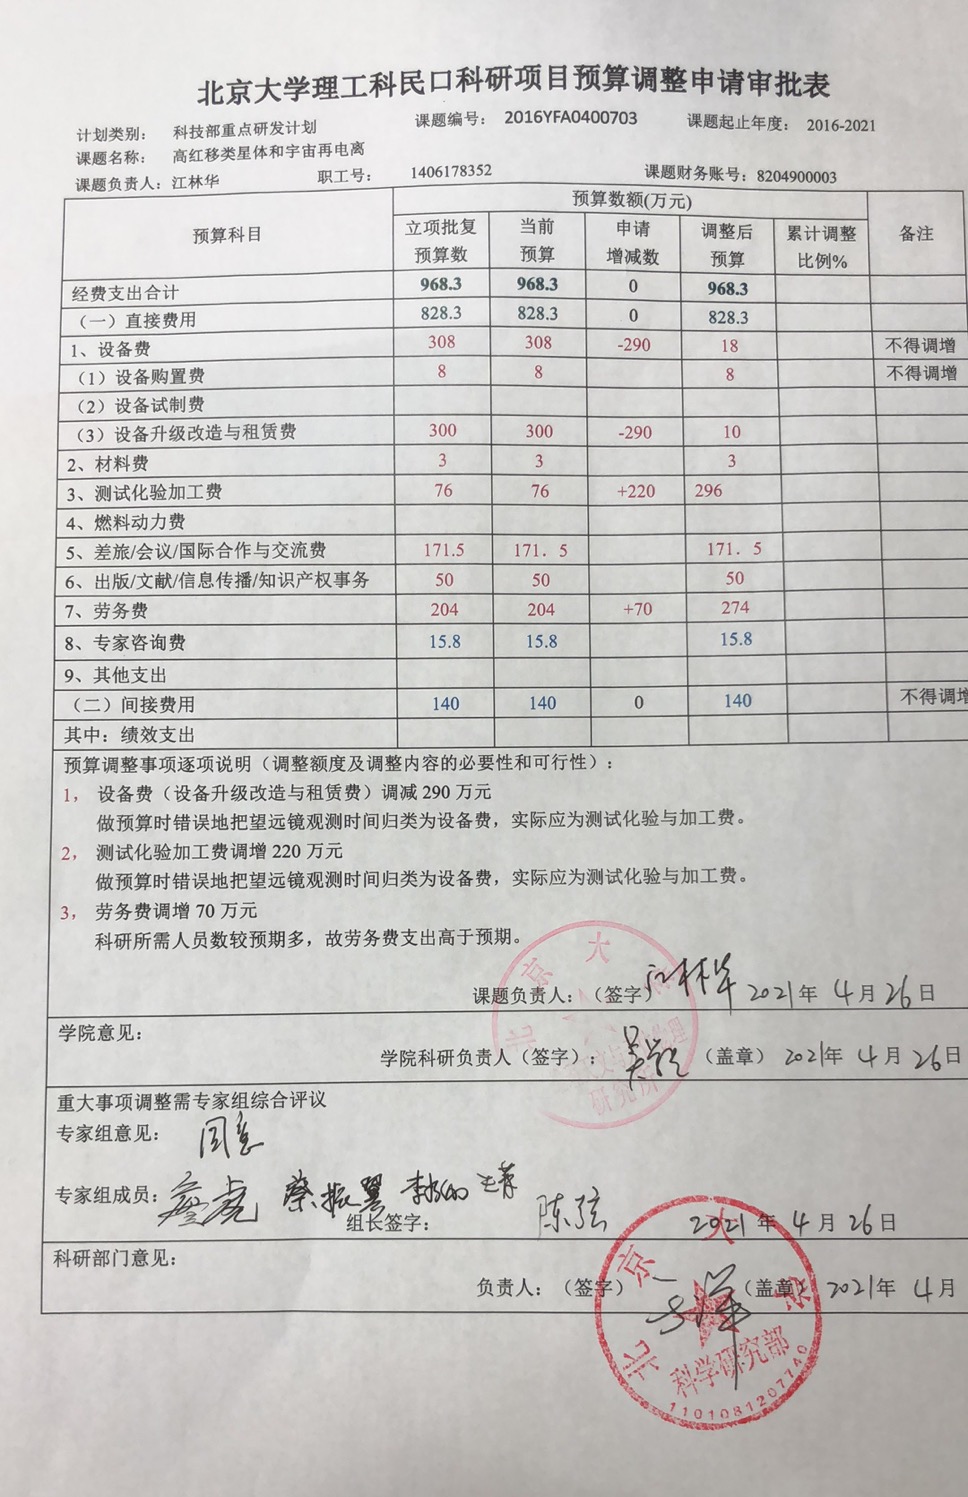 北京大学理工科民口科研项目预算调整申请审批表
计划类别： 科技部重点研发计划 课题编号： 2016YFA0400703 课题起止年度： 2016-2021
课题名称： 高红移类星体和宇宙再电离
课题负责人：江林华 职工号： 1406178352 课题财务账号：8204900003
预算科目 预算数额(万元) 备注
立项批复预算数 当前预算 申请增减数 调整后预算 累计调整比例%
经费支出合计 968.3 968.3 0 968.3
（一）直接费用 828.3 828.3 0 828.3
1、设备费 308 308 -290 18 不得调增
（1）设备购置费 8 8 8 不得调增
（2）设备试制费
（3）设备升级改造与租赁费 300 300 -290 10
2、材料费 3 3 3
3、测试化验加工费 76 76 +220 296
4、燃料动力费
5、差旅/会议/国际合作与交流费 171.5 171. 5 171. 5
6、出版/文献/信息传播/知识产权事务 50 50 50
7、劳务费 204 204 +70 274
8、专家咨询费 15.8 15.8 15.8
9、其他支出
（二）间接费用 140 140 0 140 不得调增
其中：绩效支出
预算调整事项逐项说明（调整额度及调整内容的必要性和可行性）：
1， 设备费（设备升级改造与租赁费）调减 290 万元
做预算时错误地把望远镜观测时间归类为设备费，实际应为测试化验与加工费。
2， 测试化验加工费调增 220 万元
做预算时错误地把望远镜观测时间归类为设备费，实际应为测试化验与加工费。
3， 劳务费调增 70 万元
科研所需人员数较预期多，故劳务费支出高于预期。
课题负责人：（签字）江林华 2021年 4月 26日
学院意见：
学院科研负责人（签字）： （盖章） 2021年 4月 26日
重大事项调整需专家组综合评议
专家组意见： 同意
专家组成员： 蔡振翼
组长签字： 陈弦 2021年 4月 26日
科研部门意见：
负责人：（签字） （盖章） 2021年 4月
北京大学
科学研究部
1101081207740